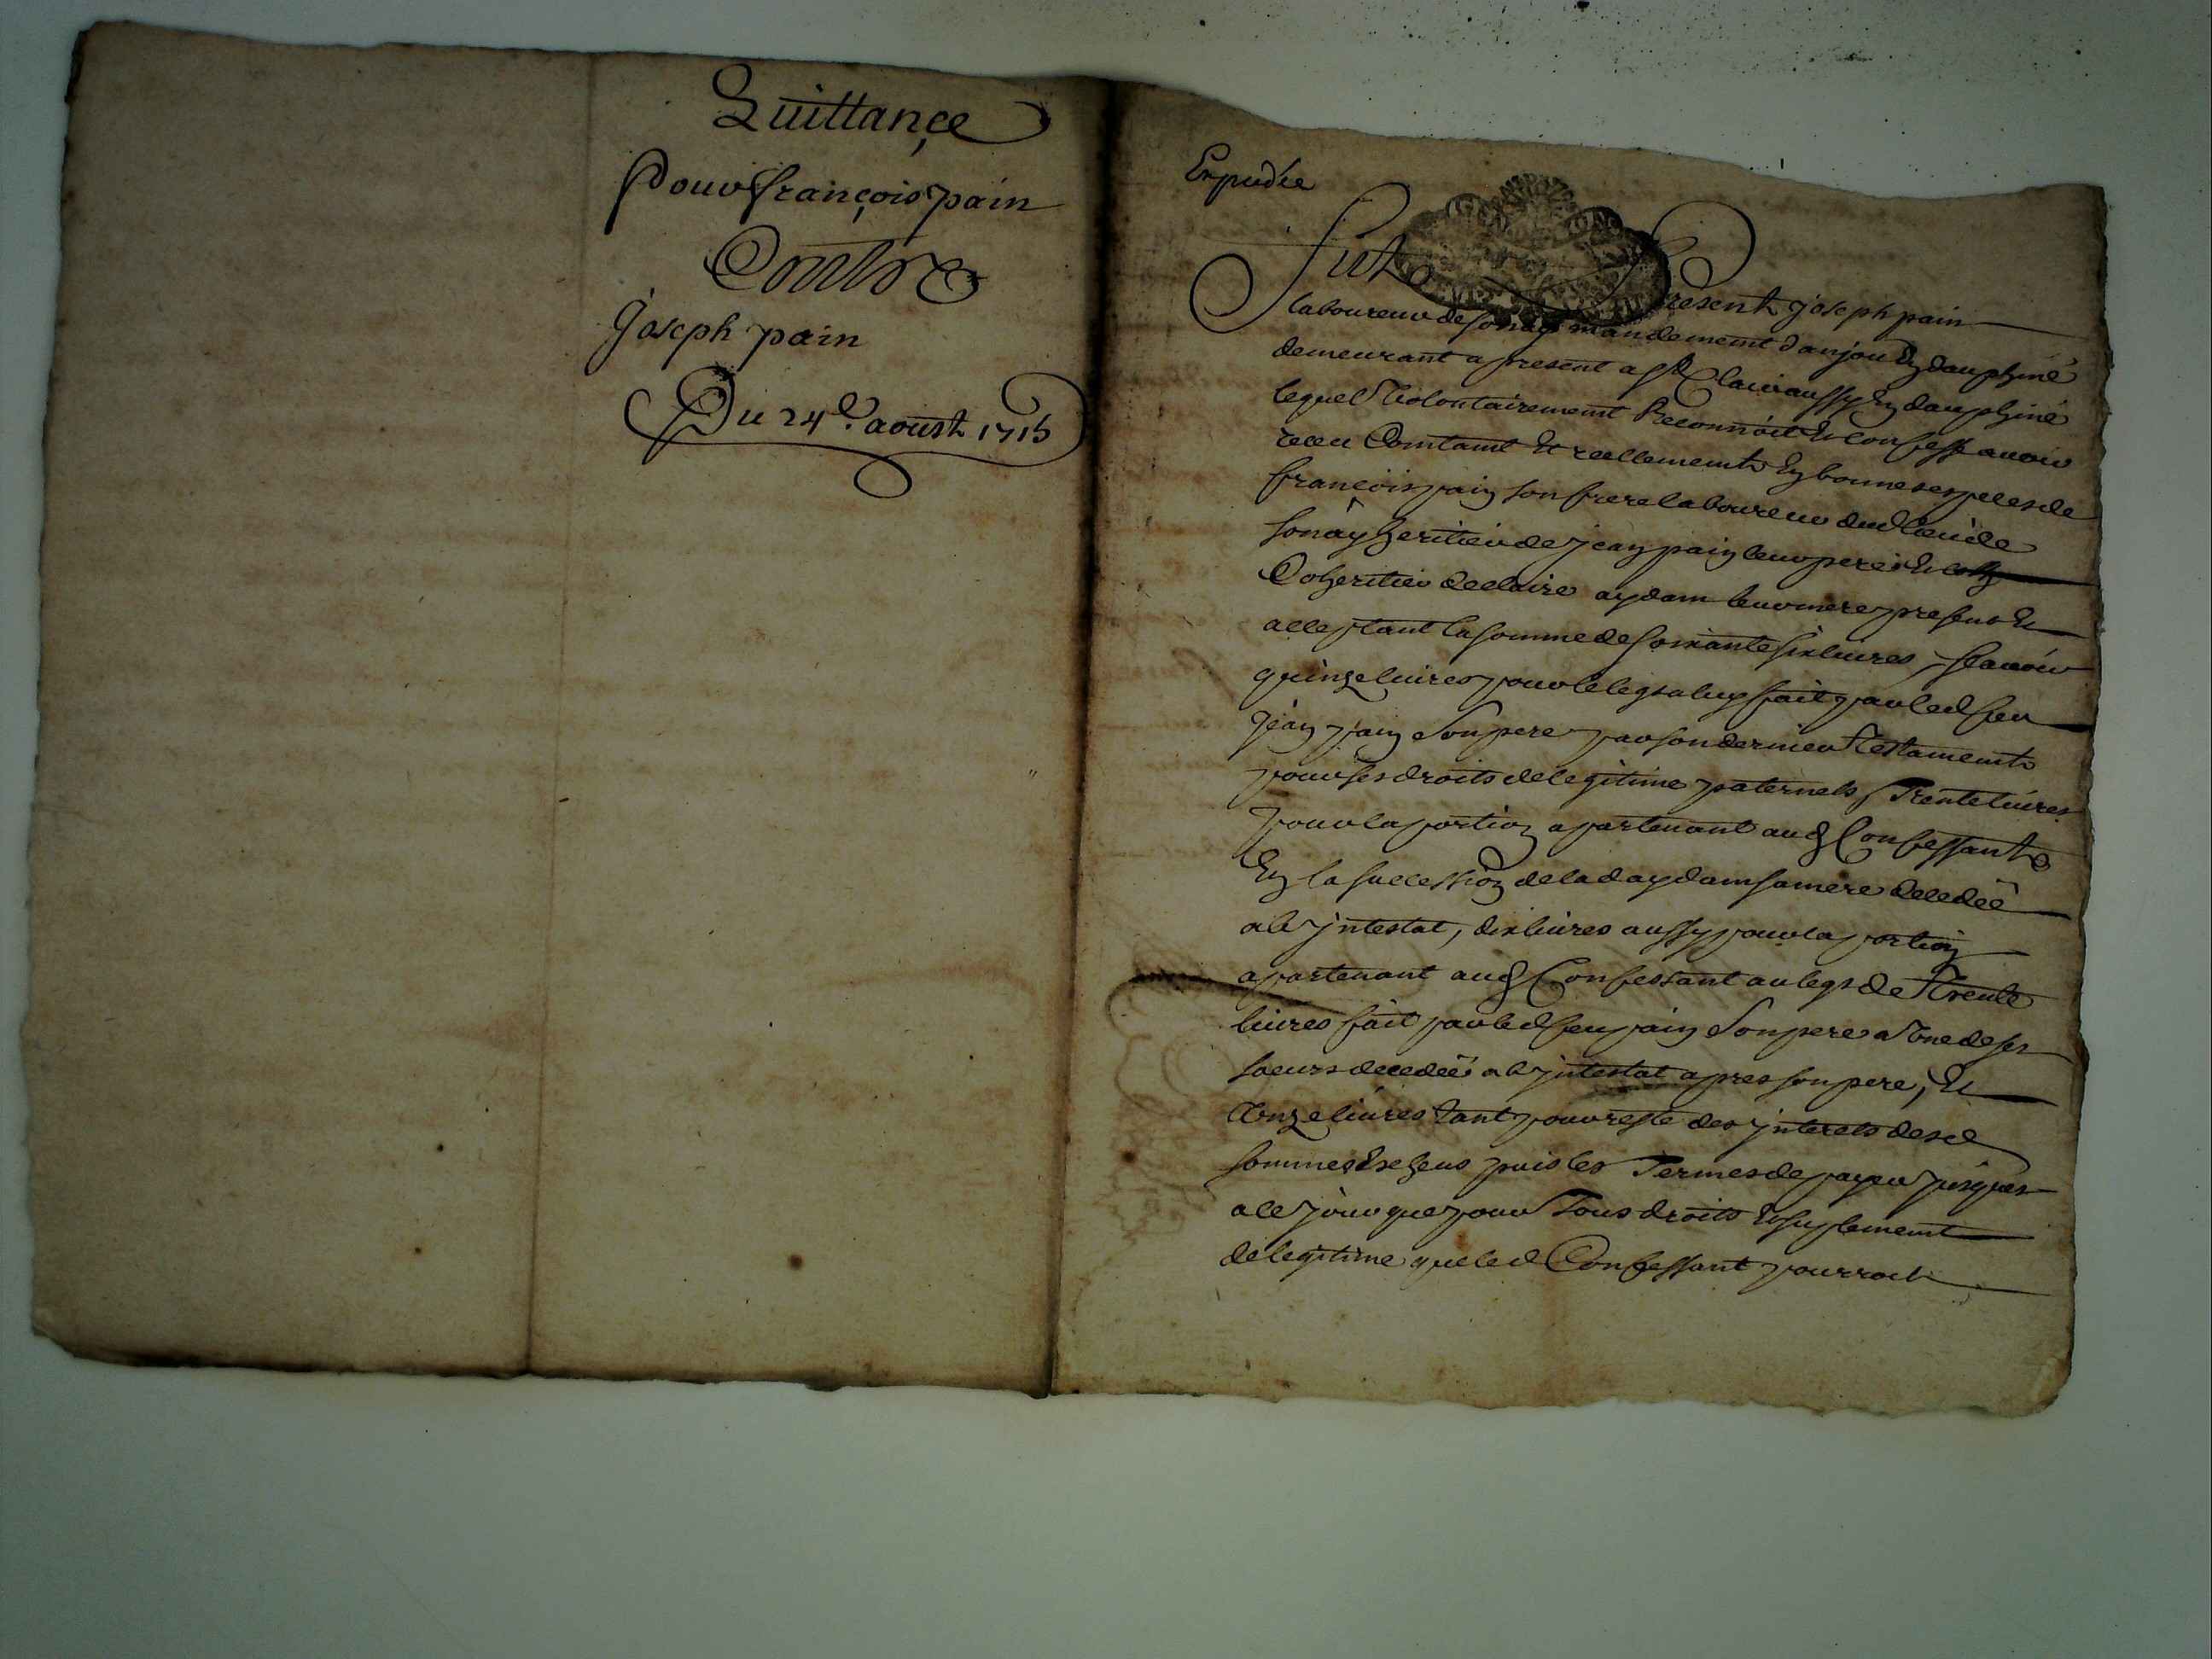 Quittançe
Pour françois pain
Contre
Joseph pain
Du 24e. aoust 1715
Expediée
Fut present joseph pain
laboureur de sonay mandement d'anjou En dauphiné
demeurant a present a st Clair aussy En dauphiné
lequel Volontairement Reconnoit Et confesse auoir
receu Comtant Et reellement En bonnes especes de
françois pain son frere laboureur dud lieu de
sonay heritier de jean pain leur pere Et
Coheritier de claire aydam leur mere present Et
acceptant la somme de soixante six liures, scauoir
quinze liures pour le legs a luy fait par led feu
jean pain Son pere par son dernier Testament
pour ses droits de legitime paternels, Trente liures
pour la portion apartenant aud Confessant
En la succession de lad aydam sa mere decedée
ab jntestat, dix liures aussy pour la portion
apartenant aud Confessant au legs de Trente
liures fait par led feu pain Son pere a Vne de ses
soeurs decedée ab jntestat apres son pere, Et
Onze liures tant pour reste des jnterets desd
sommes Escheus puis les Termes de payer jusques
a ce jour que pour Tous droits Et suplement
de legitime que led Confessant pourroit